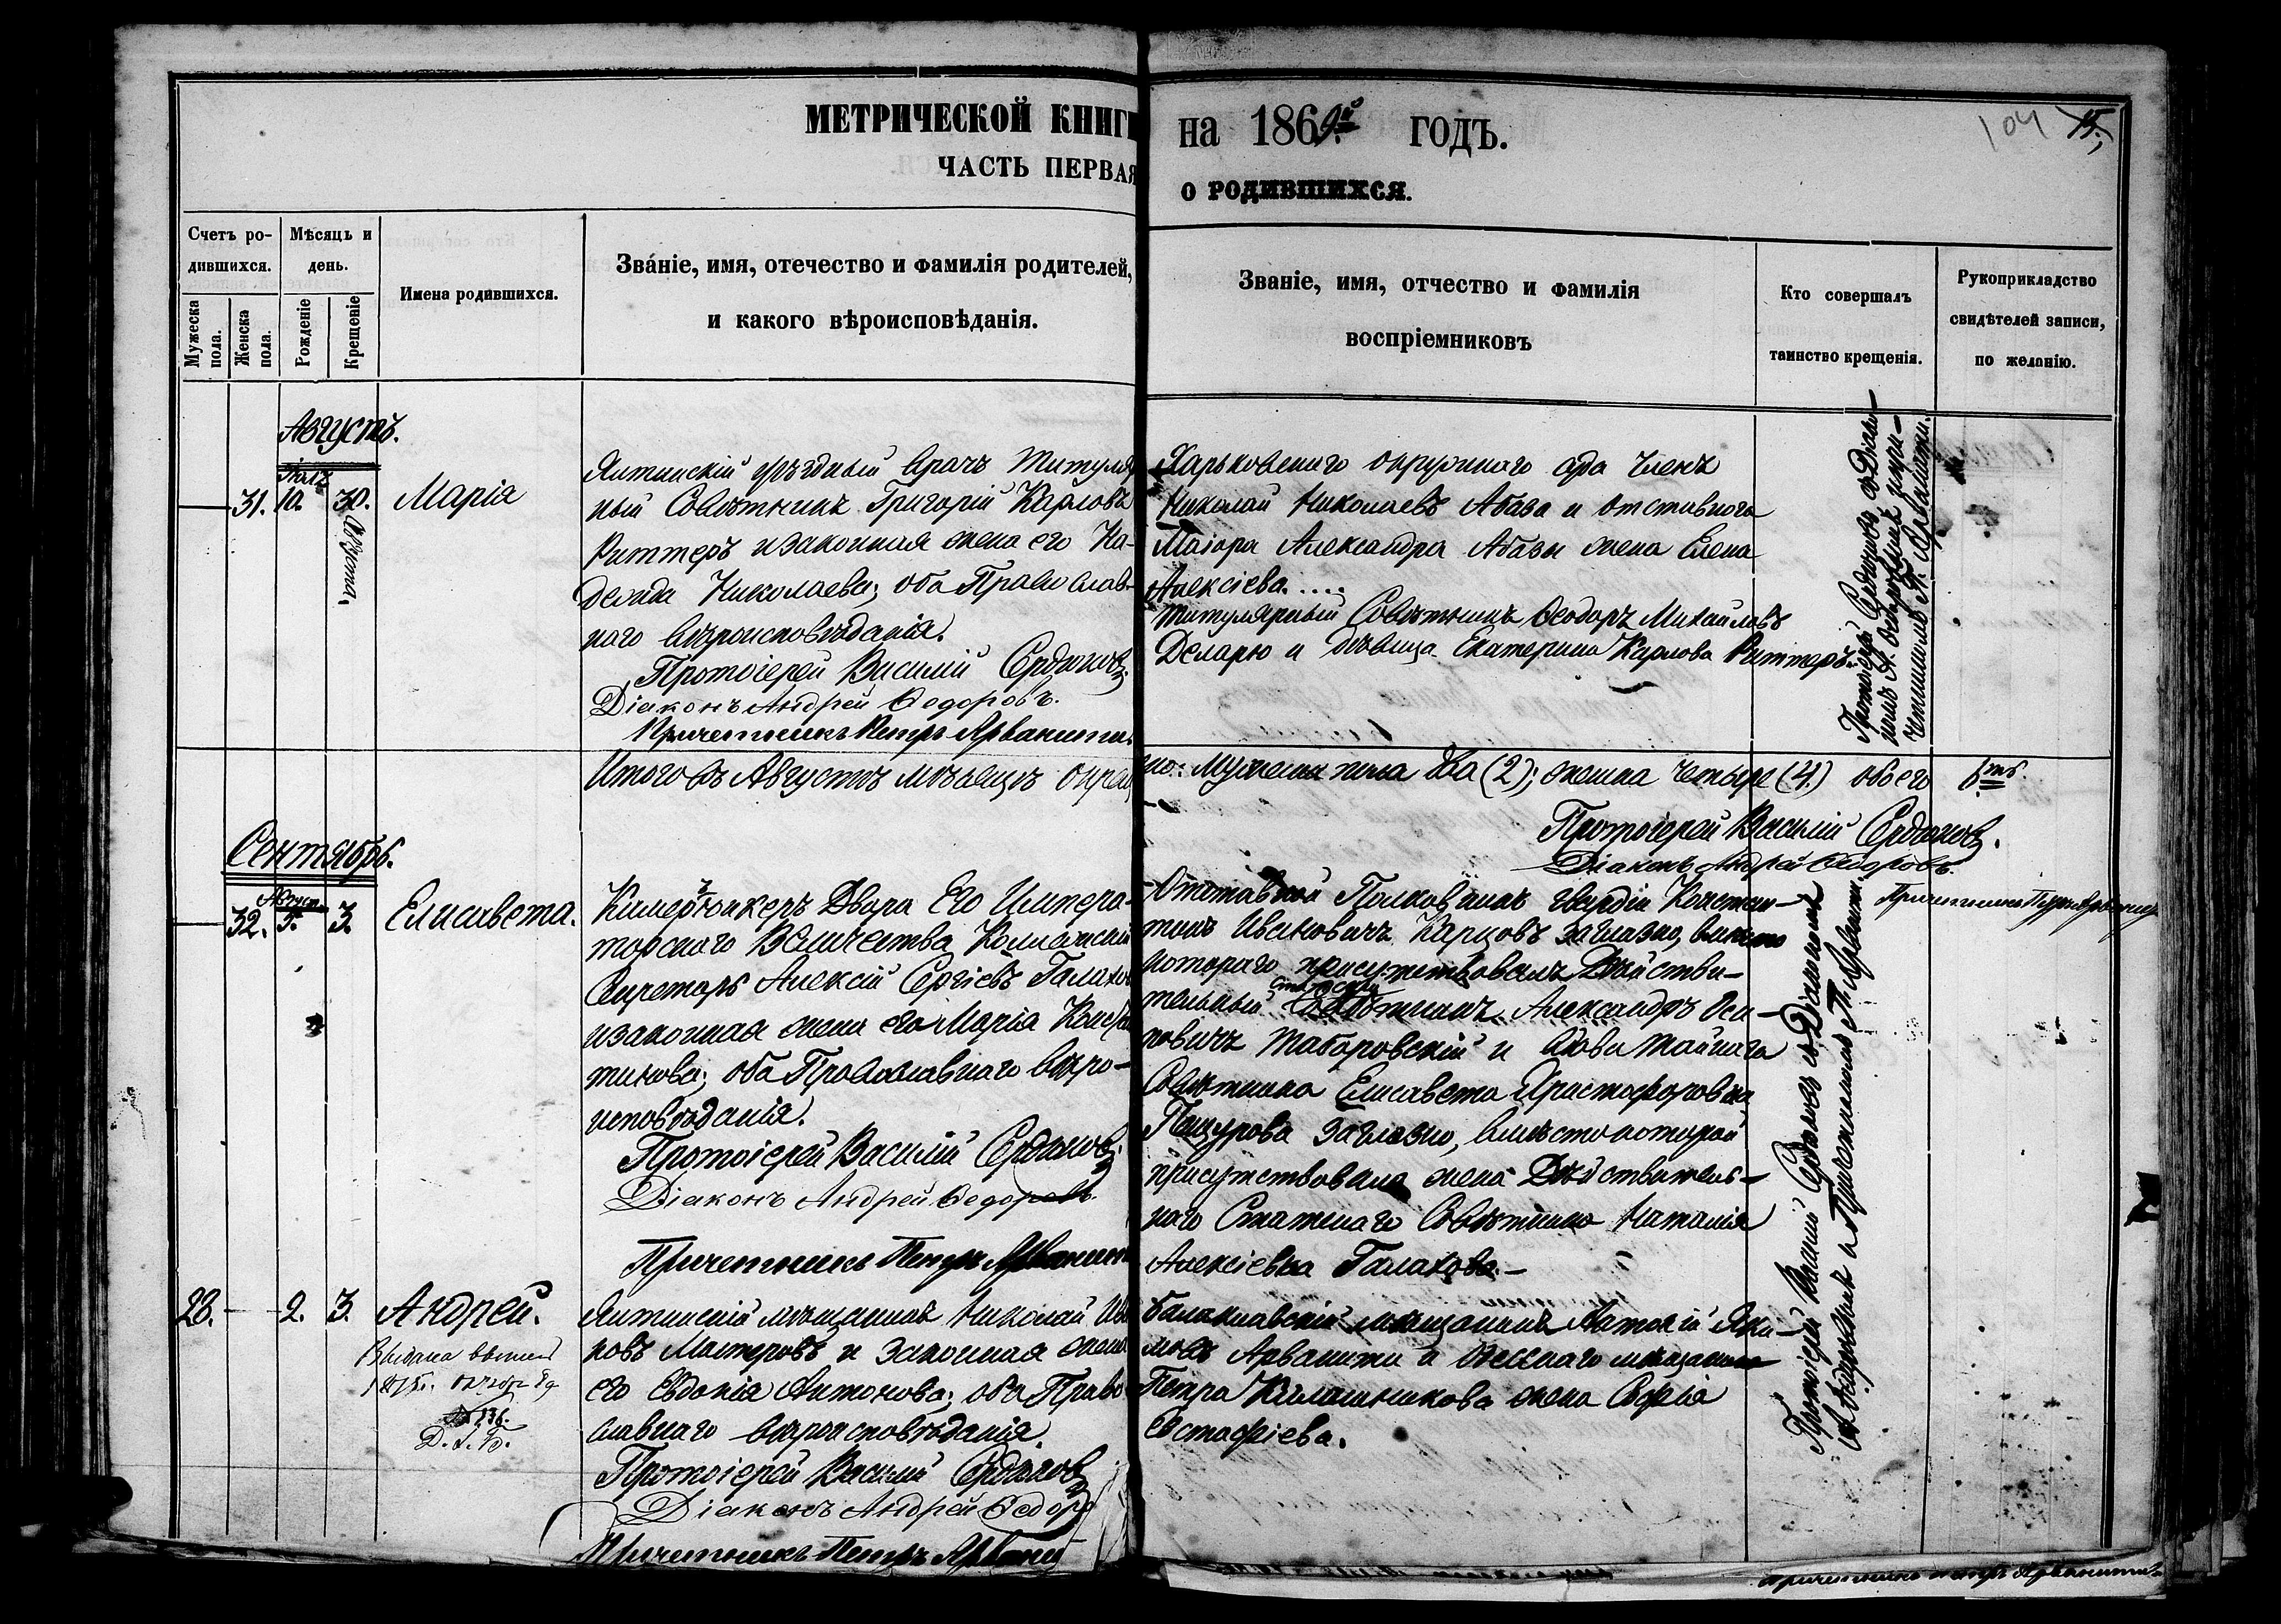 МЕТРИЧЕСКОЙ КНИГИ
ЧАСТЬ ПЕРВАЯ
на 1869й годъ.
о родившихся.
104 15,
Счетъ ро-
дившихся.
Мѣсяцъ и
день.
Мужеска
пола.
Женска
пола.
Рожденіе
Крещеніе
Имена родившихся.
Зва́ніе, имя, отечество и фамилія родителей,
и какого вѣроисповѣданія.
Званіе, имя, отчество и фамилія
воспріемниковъ
Кто совершалъ
таинство крещенія.
Рукоприкладство
свидѣтелей записи,
по желанію.
Августъ.
31. 10. 30. Августа.
Марія
Ялтинскій уѣздный врачъ Титуляр
ный Совѣтникъ Григорій Карловъ
Риттеръ и законная жена его На-
дежда Николаева; оба Православ-
наго вѣроисповѣданія.
Протоіерей Василій Сердюковъ
Діаконъ Андрей Ѳедоровъ.
Причетникъ Петръ Арванити.
Харьковскаго окружнаго суда Членъ
Николай Николаевъ Абаза и отставнаго
Маіора Александра Абазы жена Елена
Алексіева....
Титулярный Совѣтникъ Ѳеодоръ Михайловъ
Деларю и дѣвица Екатерина Карлова Риттеръ.
Протоіерей Сердюковъ съ Діако-
номъ А. Ѳедоровымъ и при-
четникомъ П. Арванити.
Итого въ Августѣ мѣсяцѣ окрещ
но: мужеска пола два (2); женска четыре (4.) обоего 6ть.
Протоіерей Василій Сердюковъ.
Діаконъ Андрей Ѳедоровъ.
Причетникъ Петръ Арванити
Сентябрь.
32. Август. 5. 3.
Елисавета.
Камеръ-юнкеръ Двора Его Импера-
торскаго Величества Коллежскій
Секретарь Алексій Сергіевъ Галахов
и законная жена его Марія Конста
тинова; оба Православнаго вѣро-
исповѣданія.
Протоіерей Василій Сердюковъ.
Діаконъ Андрей Ѳедоровъ.
Причетникъ Петръ Арванити
Отставной Полковникъ гвардіи Констан-
тинъ Ивановичъ Карцовъ заглазно, вмѣсто
котораго присутствовалъ Дѣйстви-
тельный Статскій Совѣтникъ Александръ Оси-
повичъ Таборовскій и вдова тайнаго
Совѣтника Елисавета Христофоровна
Пещурова заглазно, вмѣсто которой
присутствовала жена Дѣйствитель-
наго Статскаго Совѣтника Наталія
Алексіевна Галахова.-
28. 2. 3. Андрей.
Д. А. Б.
Ялтинскій мѣщанинъ Николай Ива
новъ Мастеровъ и законная жена
его Евдокія Антонова; оба Право
славнаго вѣроисповѣданія.
Протоіерей Василій Сердюковъ
Діаконъ Андрей Ѳедоро
Причетникъ Петръ Арвани
Балаклавскій мѣщанинъ Антоній Яки-
мовъ Арванити и Одесскаго мѣщанина
Петра Калашникова жена Софія
Евстафіева.
Протоіерей Василій Сердюковъ съ Діакономъ
А. Ѳедоровымъ и Причетникомъ П. Арванити.
Причетникъ Петръ Арванити